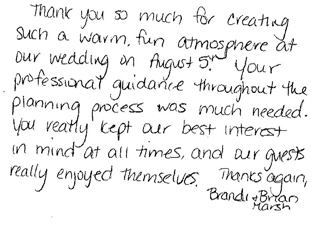 Thank you so much for creating
such a warm, fun atmosphere at
our wedding on August 5th. Your
professional guidance throughout the
planning process was much needed.
You really kept our best interest
in mind at all times, and our guests
really enjoyed themselves. Thanks again,
Brandi & Brian
Marsh